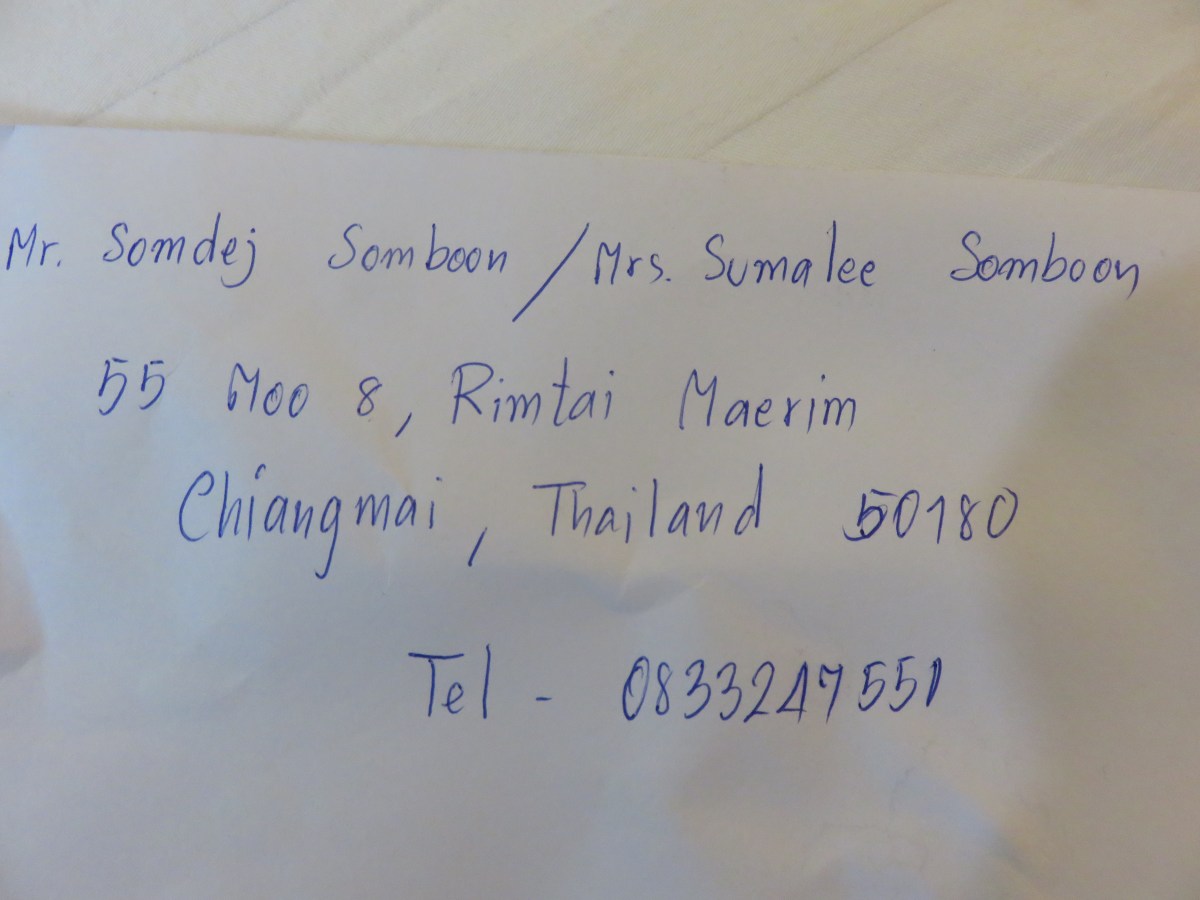 Mr. Somdej Somboon / Mrs. Sumalee Somboon
55 Moo 8, Rimtai Maerim
Chiangmai, Thailand 50180
Tel - 0833247551